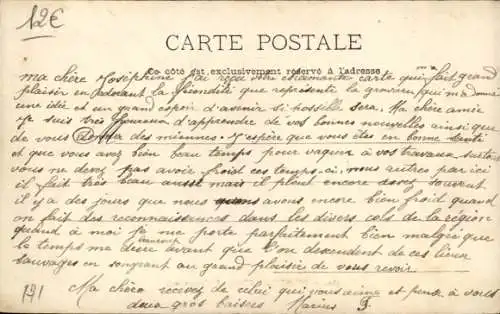 12€
CARTE POSTALE
Ce côté est exclusivement réservé à l'adresse
ma chère Joséphine j'ai reçu votre charmante carte qui m'a fait grand
plaisir en la que représente la gravure qui me donne
une idée et un grand espoir d'avenir si possible sera. Ma chère amie
Je suis très heureux d'apprendre de vos bonnes nouvelles ainsi que
de vous donner des miennes. J'espère que vous êtes en bonne santé
et que vous avez bien beau temps pour vaquer à vos travaux surtout
vous ne devez pas avoir froid ces temps-ci, nous autres par ici
il fait très beau aussi mais il pleut encore assez souvent
il y a des jours que nous avons encore bien froid quand
on fait des reconnaissances dans les divers cols de la région
quand à moi je me porte parfaitement bien malgré que
le temps me dure avant que l'on descendent de ces lieux
sauvages en songeant au grand plaisir de vous revoir
Ma chère recevez de celui qui vous aime et pense à vous
deux gros baisers Marius F.
191